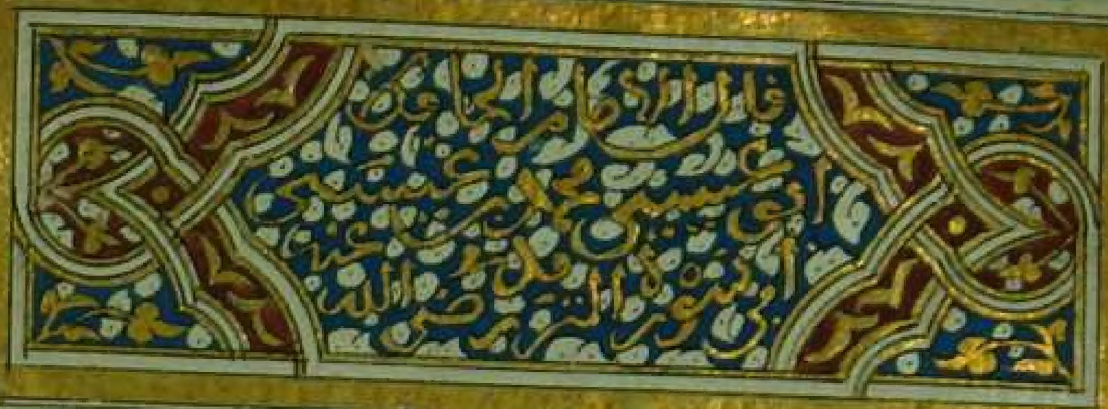 قال الامام الحافظ
ابو عيسى محمد بن عيسى
ابن سورة الترمذي رضي الله عنه